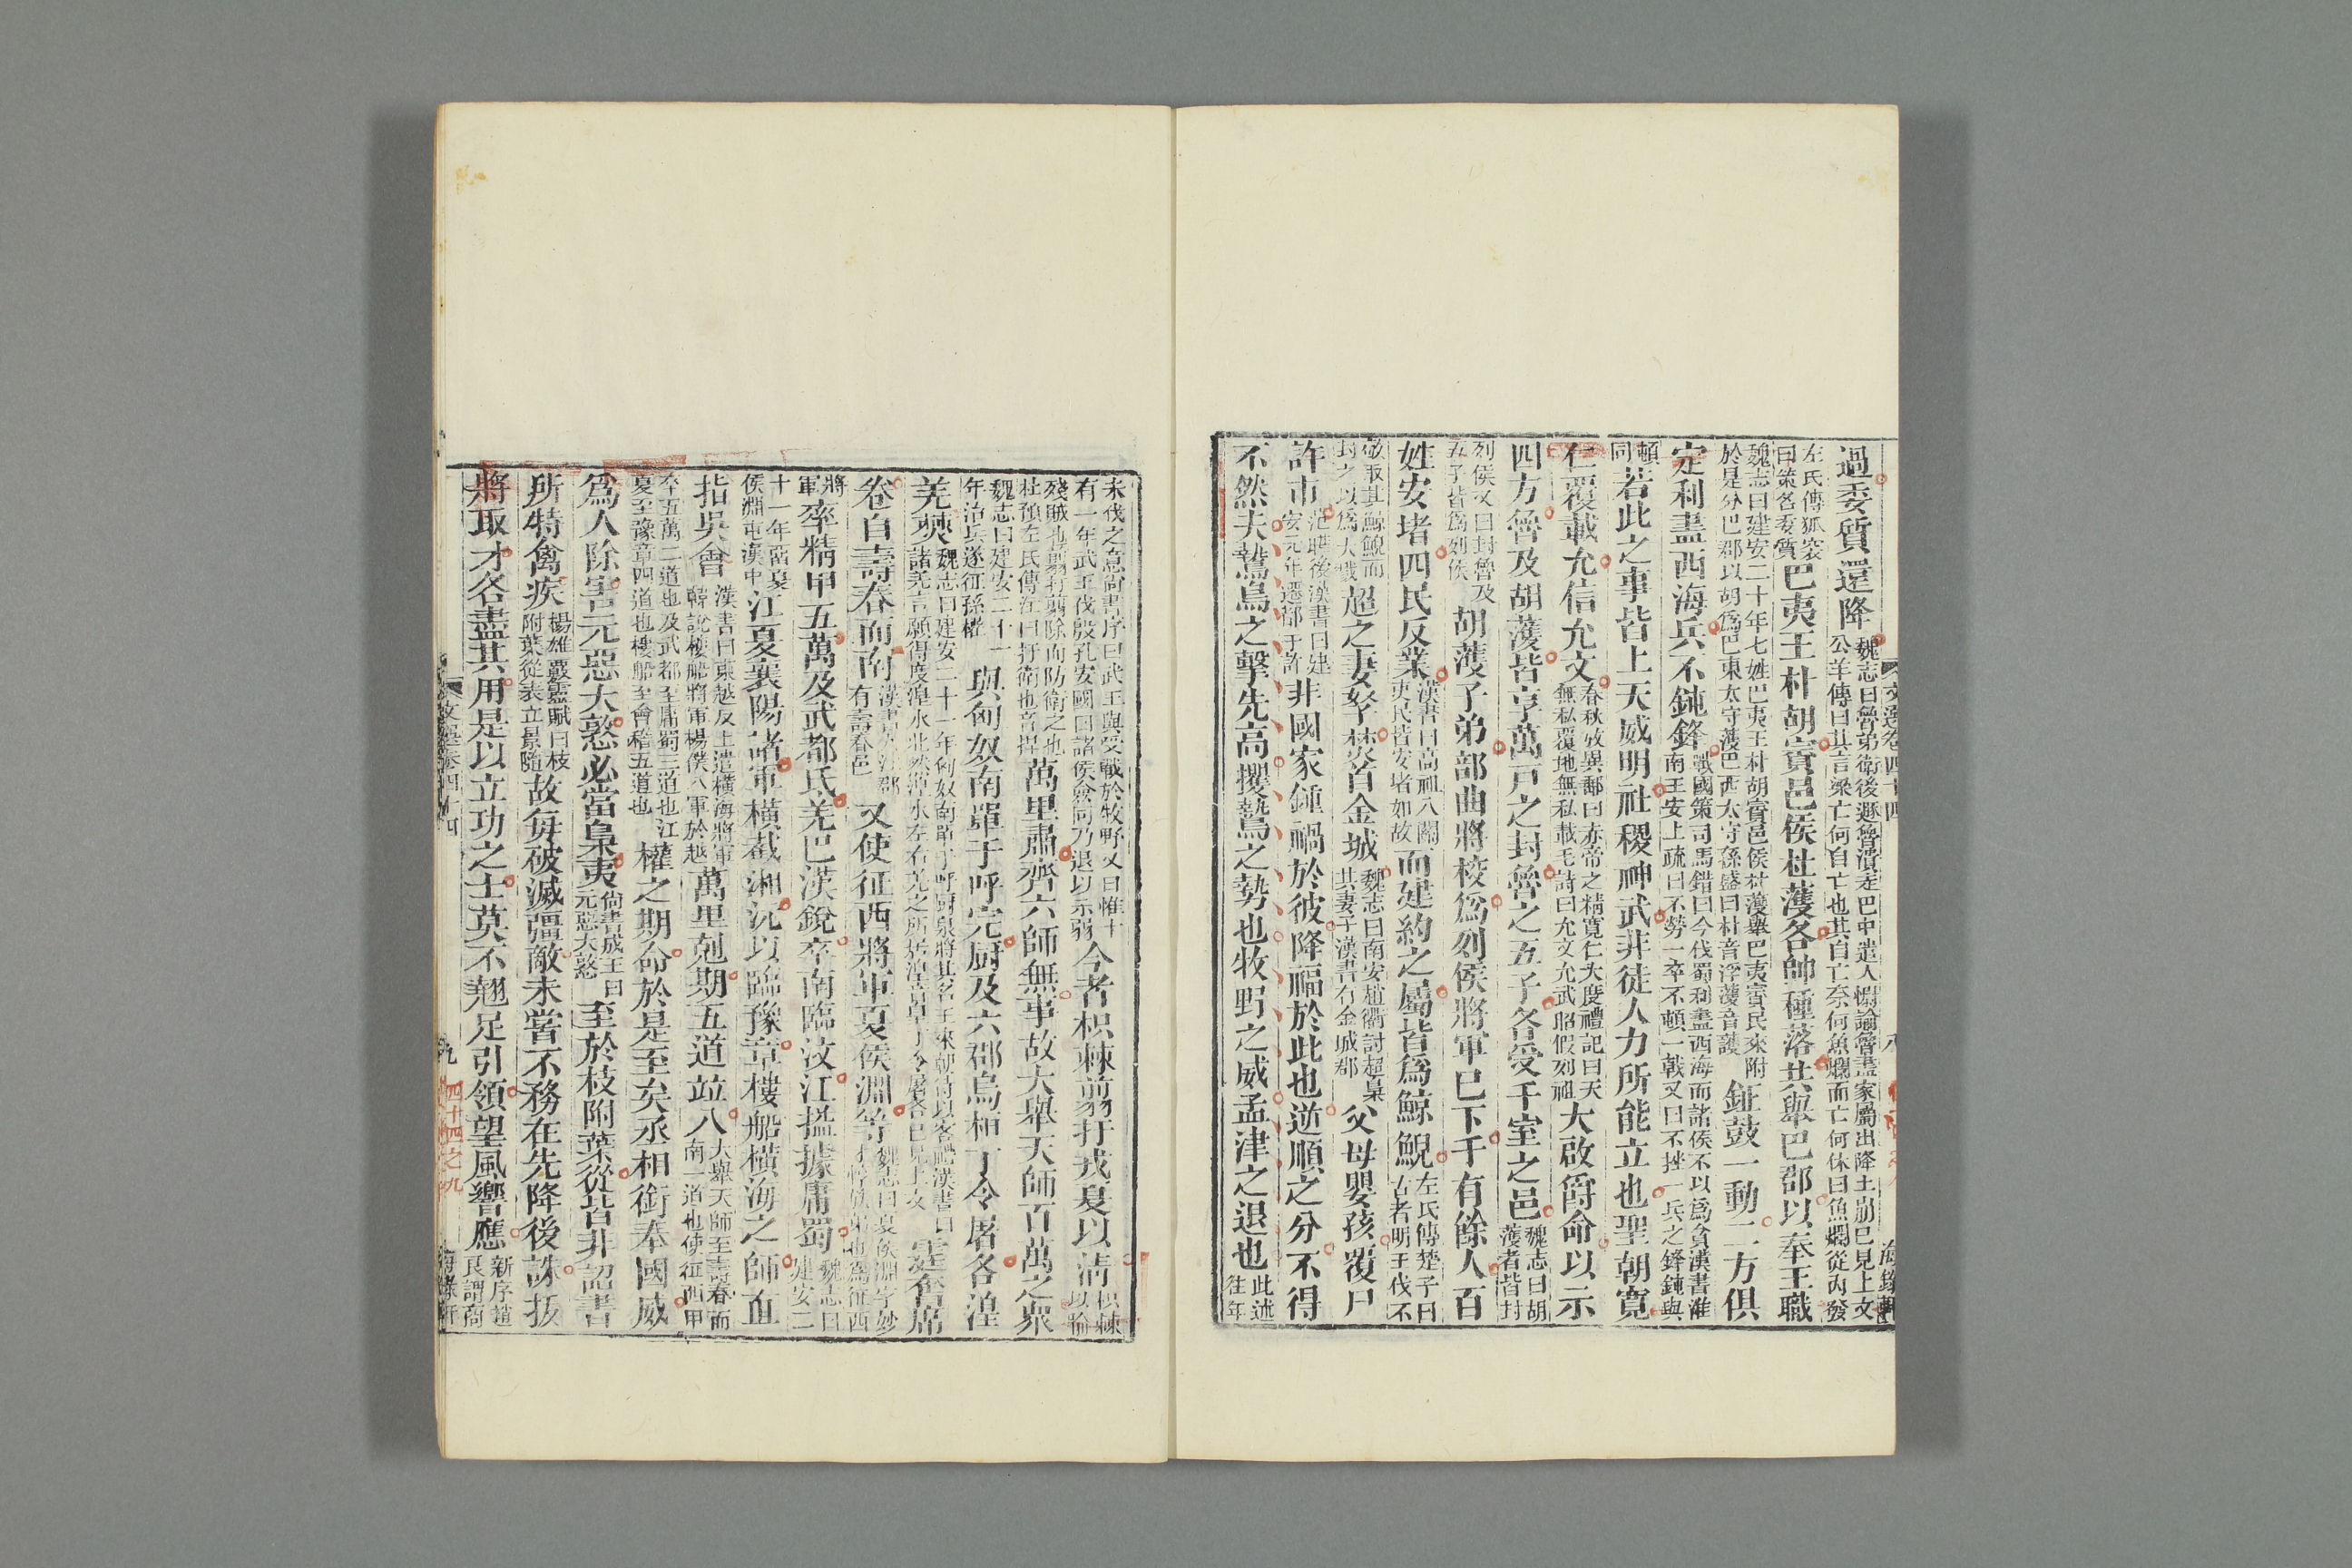 過委質還降魏志曰魯弟衛後遯魯潰走巴中遣人慰諭魯盡家屬出降土崩已見上文公羊傳曰其言梁亡何自亡也其自亡奈何魚爛而亡何休曰魚爛從內發
左氏傳狐突曰策名委質巴夷王朴胡賨邑侯杜濩各帥種落共舉巴郡以奉王職
魏志曰建安二十年七姓巴夷王朴胡賨邑侯杜濩舉巴夷賨民來附於是分巴郡以胡爲巴東太守濩巴西太守孫盛曰朴音浮濩音護鉦鼓一動二方俱
定利盡西海兵不鈍鋒戰國策司馬錯曰今伐蜀利盡西海而諸侯不以爲貪漢書淮南王安上疏曰不勞一卒不頓一戟又曰不挫一兵之鋒鈍與
頓同若此之事皆上天威明社稷神武非徒人力所能立也聖朝寬
仁覆載允信允文春秋攷異郵曰赤帝之精寬仁大度禮記曰天無私覆地無私載毛詩曰允文允武昭假列祖大啟爵命以示
四方魯及胡濩皆享萬戶之封魯之五子各受千室之邑魏志曰胡濩者皆封
列侯又曰封魯及五子皆爲列侯胡濩子弟部曲將校爲列侯將軍已下千有餘人百
姓安堵四民反業漢書曰高祖入關吏民皆安堵如故而建約之屬皆爲鯨鯢左氏傳楚子曰古者明王伐不
敬取其鯨鯢而封之以爲大戮超之妻孥焚首金城魏志曰南安趙衢討超梟其妻子漢書有金城郡父母嬰孩覆尸
許市范曄後漢書曰建安元年遷都于許非國家鍾禍於彼降福於此也逆順之分不得
不然夫鷙鳥之擊先高攫鷙之勢也牧野之威孟津之退也此述往年
未伐之意尚書序曰武王與受戰於牧野又曰惟十有一年武王伐殷孔安國曰諸侯僉同乃退以示弱今者枳棘翦扞戎夏以清枳棘以喻
殘賊也翦扞翦除而防衛之也杜預左氏傳注曰扞衛也音捍萬里肅齊六師無事故大舉天師百萬之衆
魏志曰建安二十一年治兵遂征孫權與匈奴南單于呼完廚及六郡烏桓丁令屠各湟
羌僰魏志曰建安二十一年匈奴南單于呼廚泉將其名王來朝待以客禮漢書曰諸羌言願得度湟水北然湟水左右羌之所居湟音皇丁令屠各已見上文霆奮席
卷自壽春而南漢書九江郡有壽春邑又使征西將軍夏侯淵等魏志曰夏侯淵字妙才惇族弟也爲征西
將軍率精甲五萬及武都氐羌巴漢銳卒南臨汶江搤據庸蜀魏志曰建安二
十一年留夏侯淵屯漢中江夏襄陽諸軍橫截湘沅以臨豫章樓船橫海之師直
指吳會漢書曰東越反上遣橫海將軍韓說樓船將軍楊僕入軍於越萬里剋期五道竝入大舉天師至壽春而南一道也使征西甲
卒五萬二道也及武都至庸蜀三道也江夏至豫章四道也樓船至會稽五道也權之期命於是至矣丞相銜奉國威
爲人除害元惡大憝必當梟夷尚書成王曰元惡大憝至於枝附葉從皆非詔書
所特禽疾楊雄覈靈賦曰枝附葉從表立景隨故每破滅彊敵未嘗不務在先降後誅拔
將取才各盡其用是以立功之士莫不翹足引領望風響應新序趙良謂商
文選卷四十四
九
四十四之九
海錄軒
文選卷四十四
八
海錄軒